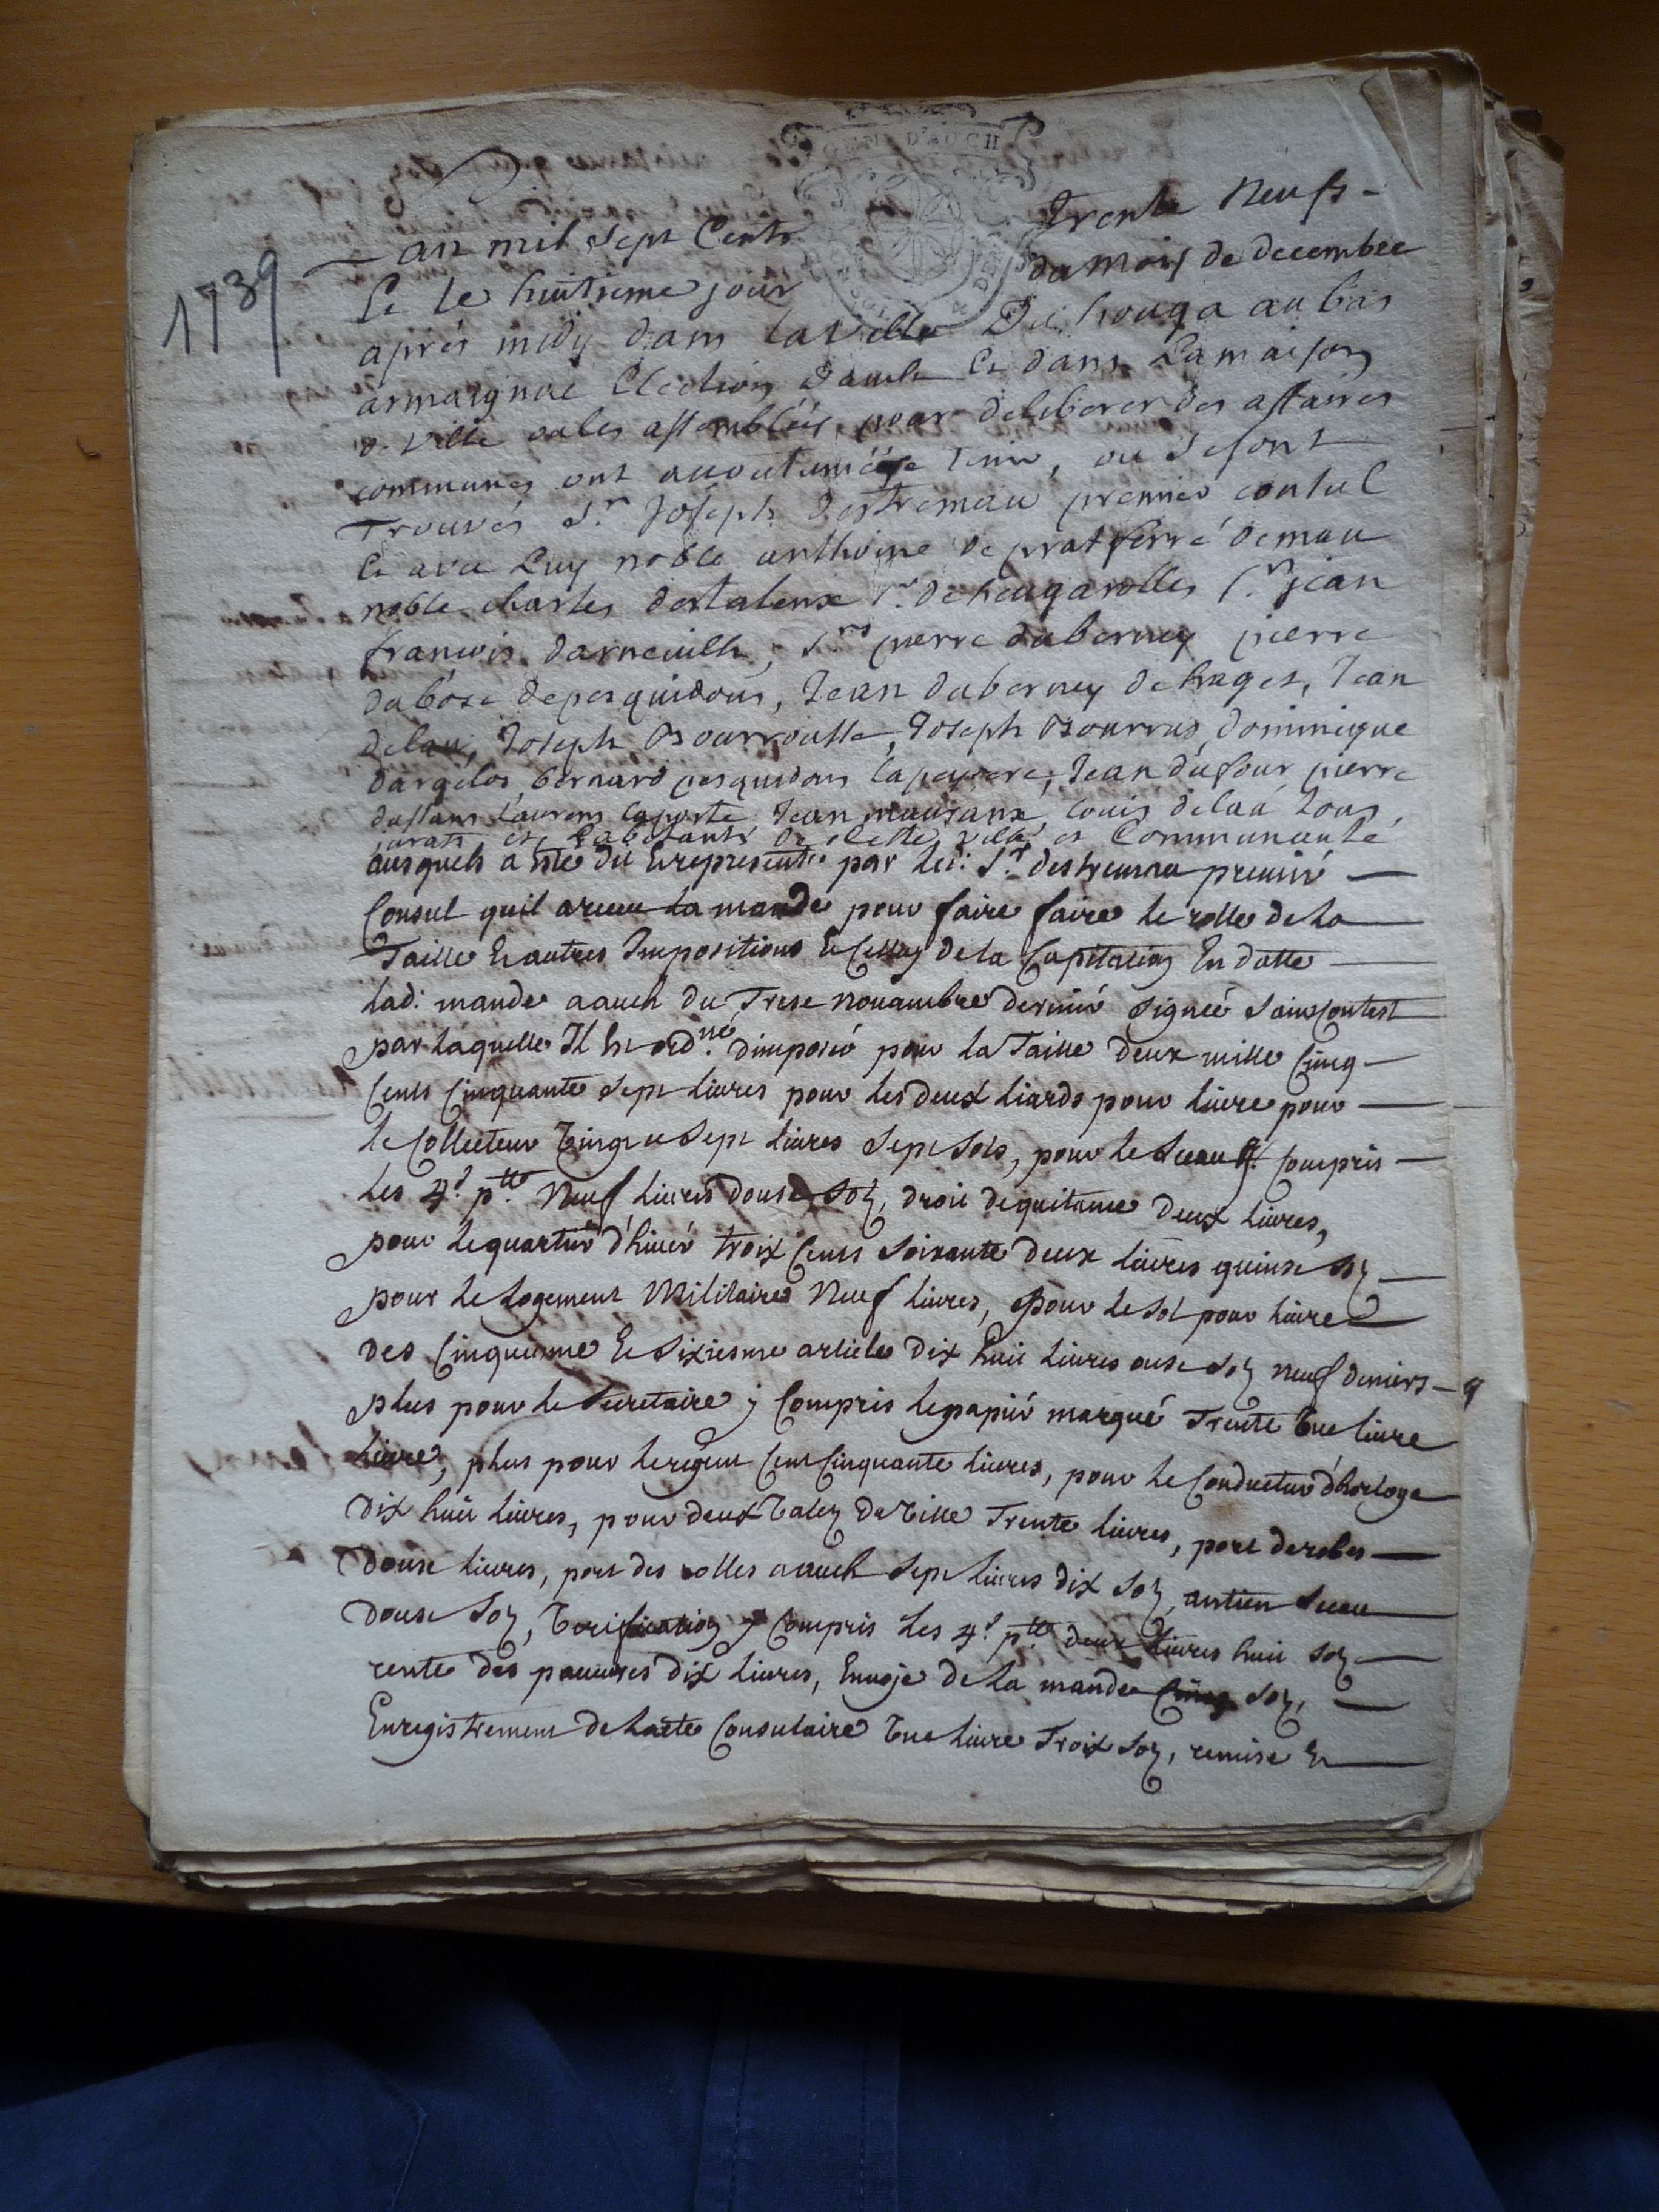 1739
GEN. D'AUCH
an mil sept Cents Trente Neufs -
Et le huitieme jour du mois de decembre
aprés midy dans la ville Du houga au bas
armaignac Election d'auch Et dans La maison
de ville ou les assemblées pour deliberer des affaires
communes ont accoutumé se tenir, ou se sont
Trouvés Sr. Joseph destremau premier consul
Et avec Luy noble anthoine de pratferré demau
noble charles destalens Sr. de heugarolles Sr. jean
francois darneuilh, Srs pierre duberney pierre
dabose depesquidous, Jean duberney de hages, Jean
delau, Joseph Bourrousse, Joseph Bourrus, dominique
dargelos, bernard pesquidous lapeyrere, Jean dufour pierre
dussans Laurens laporte Jean mausans, louis delaa tous
jurats et habitants de Cette ville et Communauté
ausquels a esté dit Et representé par led: Sr. destremau premié
Consul quil a receu la mande pour faire faire le rolle de la
Taille Et autres Impositions Et Celluy de la Capitation En datte
lad: mande a auch du Trese nouambre dernié signéé Saincontest
par laquelle Il Est ordné. dimposer pour la Taille deux mille Cinq
Cents Cinquante sept livres pour les deux liards pour livre pour
le Collecteur Vingt sept livres sept sols, pour le sceau Compris
les 4d. ptte Neuf livres douse sols, droit de quitance deux livres,
pour le quartié d'hiuer troix Cents soixante deux livres quinse sols
pour le logement Militaire Neuf livres, pour le sol pour livre
des Cinquieme Et sixiesme article dix huit livres onse sols neuf deniers - 9
plus pour le secretaire y Compris le papié marqué Trente Vne livre
livre, plus pour le regent Cent Cinquante livres, pour le Conducteur d'horloge
dix huit livres, pour deux Valets de Ville Trente livres, port de robes
douse livres, port des rolles a auch sept livres dix sols, antien sceau
douse sols, Verification y Compris les 4d. ptte deux livres huit sols
rente des pauures dix livres, Enuoje de la mande Cinq sols,
Enregistrement de lacte Consulaire Vne livre Troix sols, remise Et